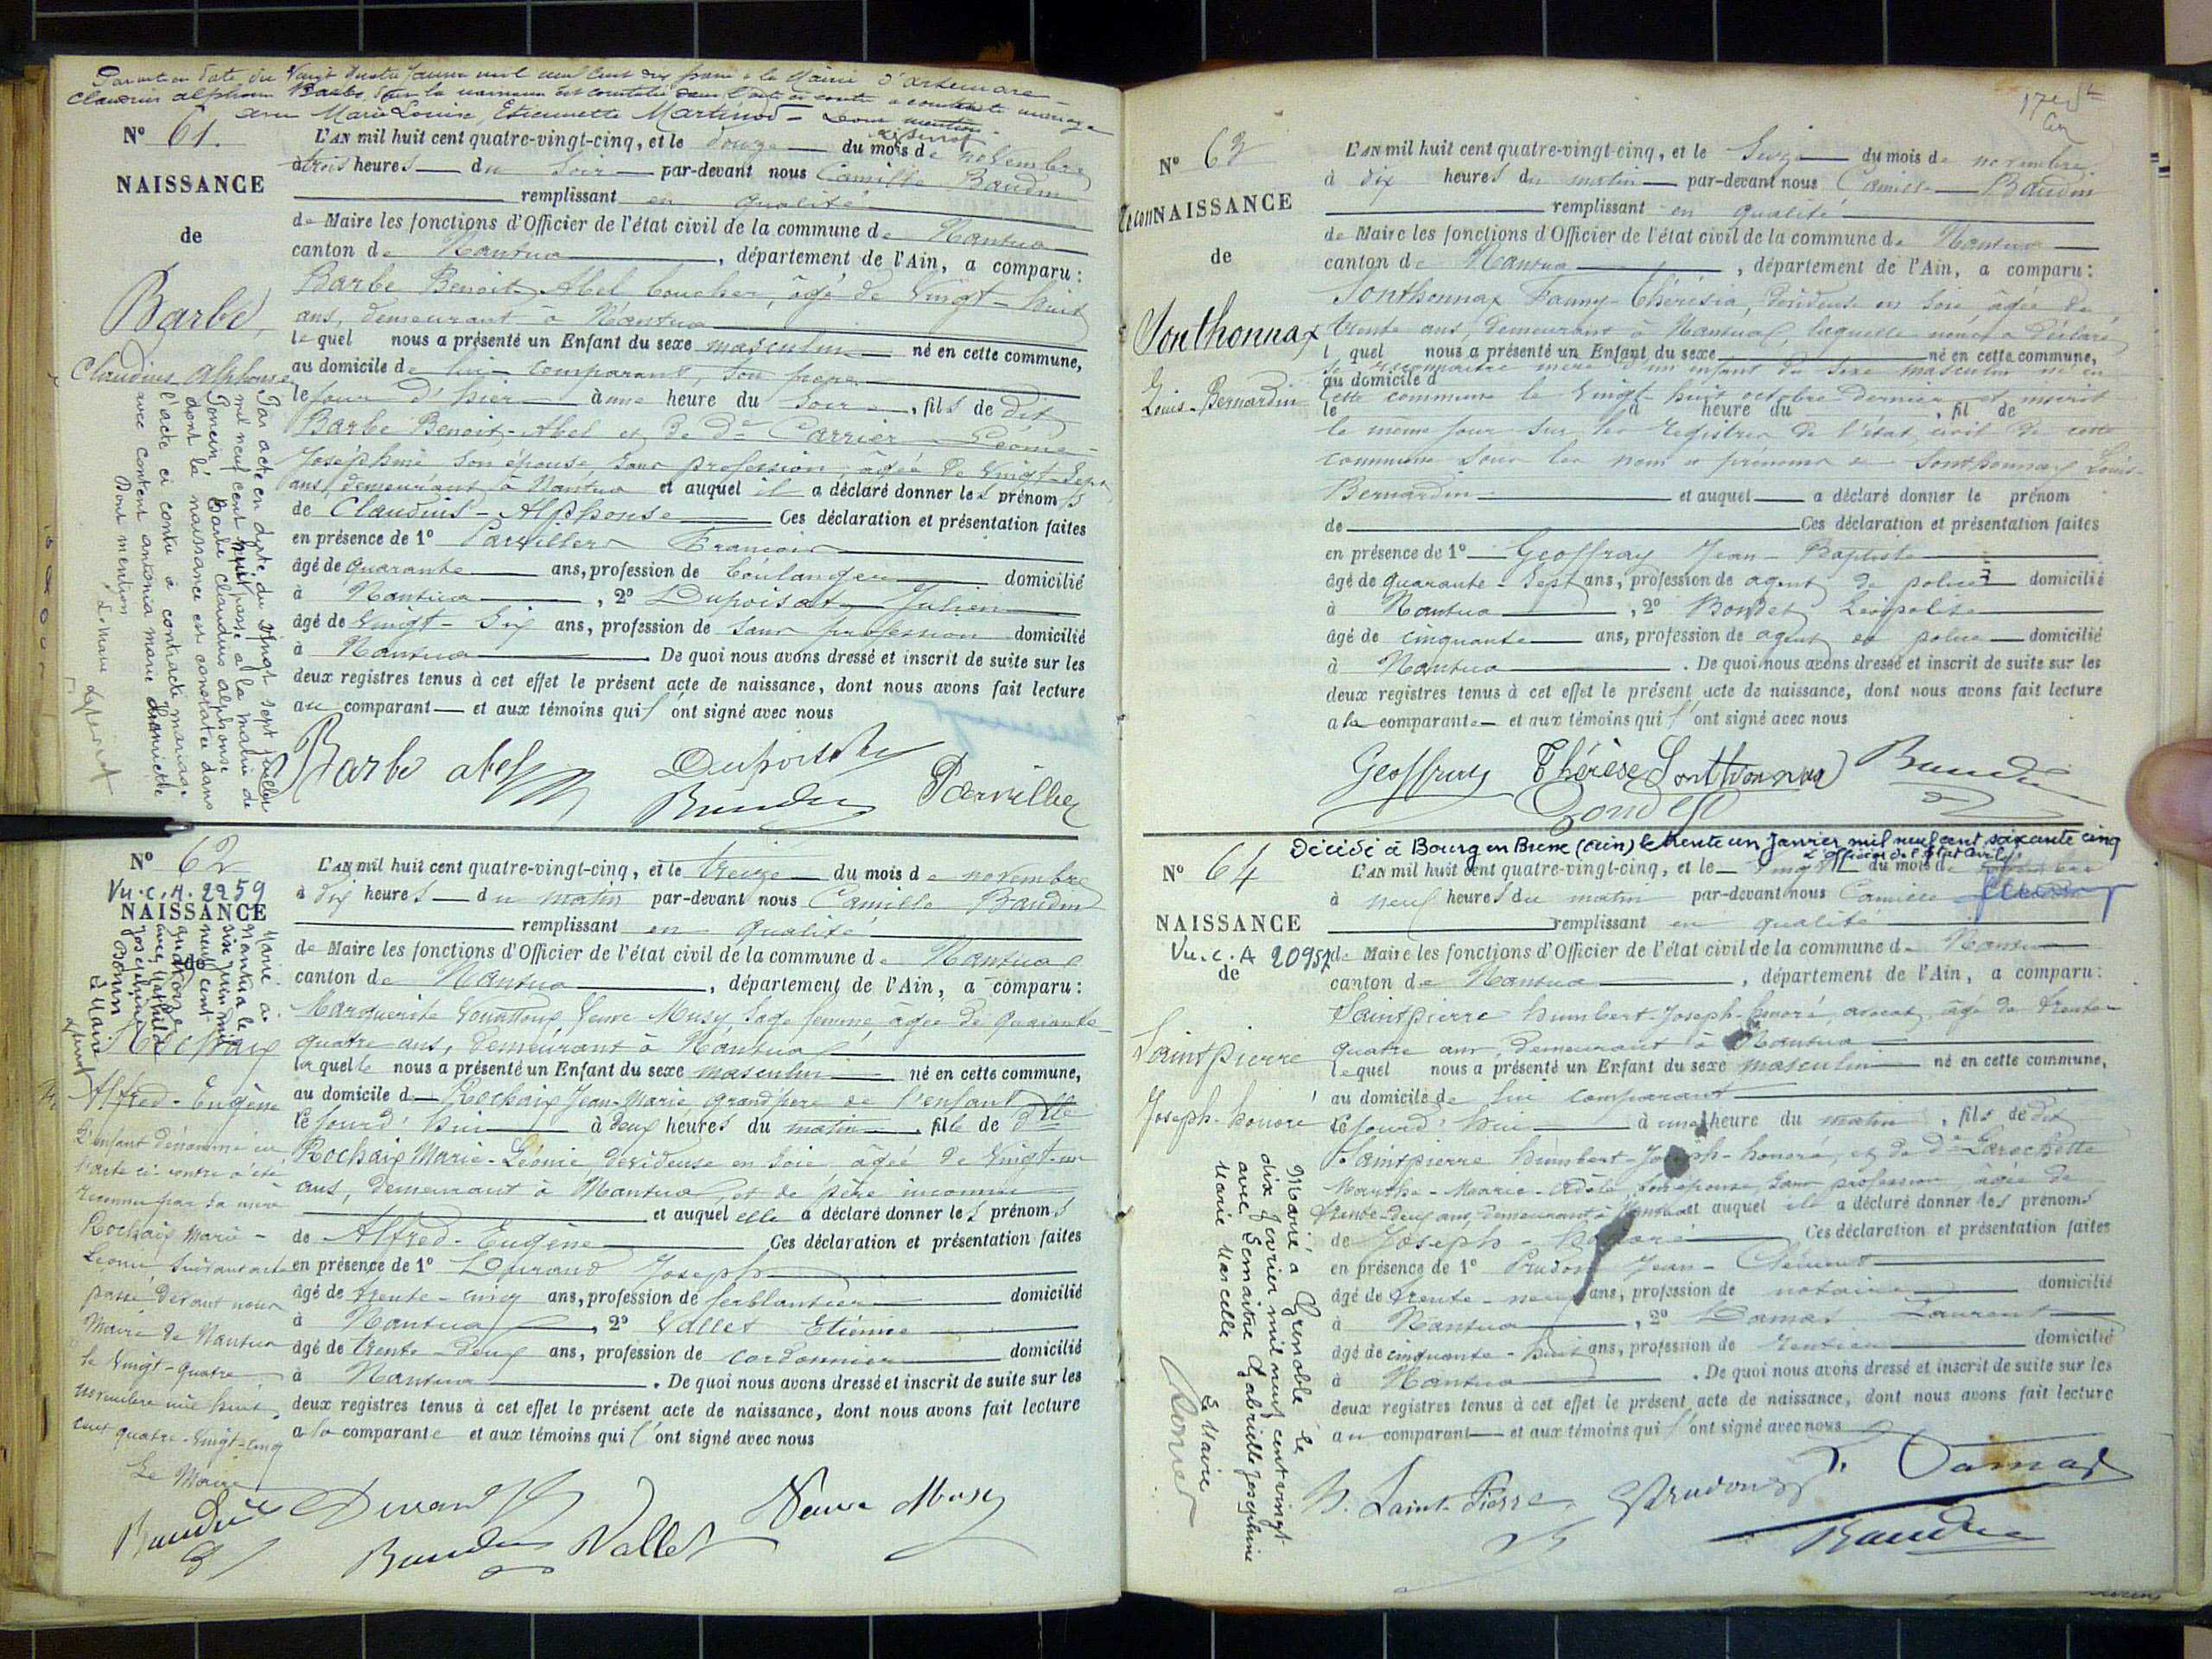 Par acte en date du Vingt quatre Janvier mil neuf cent dix passé à la Mairie d'Artemare
Claudius Alphonse Barbe, dont la naissance est constatée dans l'acte ci contre a contracté mariage
avec Marie Louise, Etiennette Martinod - Dont mention
N° 61.
NAISSANCE
de
Barbe,
Claudius Alphonse
Par acte en date du vingt sept juillet
mil neuf cent huit passé à la mairie de
Poncin, Barbe Claudius Alphonse
dont la naissance est constatée dans
l'acte ci contre à contracté mariage
avec Content Antonia Marie Henriette
Dont mention
Le Maire
L'AN mil huit cent quatre-vingt-cinq, et le douze du mois de novembre
à trois heures du soir par-devant nous Camille Baudin
remplissant en qualité
de Maire les fonctions d'Officier de l'état civil de la commune de Nantua
canton de Nantua, département de l'Ain, a comparu:
Barbe Benoit-Abel boucher, âgé de vingt-huit
ans, demeurant à Nantua
lequel nous a présenté un Enfant du sexe masculin né en cette commune,
au domicile de lui comparant, son père
le jour d'hier à une heure du soir, fils de dit
Barbe Benoit-Abel et de De Carrier Léonie
Joséphine, son épouse, sans profession, âgée de vingt-sept
ans, demeurant à Nantua et auquel il a déclaré donner les prénoms
de Claudius-Alphonse Ces déclaration et présentation faites
en présence de 1° Parvillers François
âgé de quarante ans, profession de boulanger domicilié
à Nantua, 2° Dupoisat Julien
âgé de vingt-six ans, profession de sans profession domicilié
à Nantua. De quoi nous avons dressé et inscrit de suite sur les
deux registres tenus à cet effet le présent acte de naissance, dont nous avons fait lecture
au comparant et aux témoins qui l'ont signé avec nous
Barbe abel Dupoisat Parvillers
Baudin
N° 62
Vu. C. A. 2259
NAISSANCE
de
Rochaix
Alfred-Eugène
Marié à
Nantua le
six juin mil
neuf cent
quatorze
avec Mathilde
Joséphine
Bonin
Le Maire
L'enfant dénommé en
l'acte ci-contre a été
reconnu par sa mère
Rochaix Marie-
Léonie suivant acte
passé devant nous
Maire de Nantua
le vingt-quatre
novembre mil huit
cent quatre-vingt-cinq
Le Maire
Baudin
L'AN mil huit cent quatre-vingt-cinq, et le treize du mois de novembre
à dix heures du matin par-devant nous Camille Baudin
remplissant en qualité
de Maire les fonctions d'Officier de l'état civil de la commune de Nantua
canton de Nantua, département de l'Ain, a comparu:
Marguerite veuve Musy sage femme, âgée de quarante-
quatre ans, demeurant à Nantua
laquelle nous a présenté un Enfant du sexe masculin né en cette commune,
au domicile de Rochaix Jean-Marie grand père de l'enfant
le jourd'hui à deux heures du matin, fils de dlle
Rochaix Marie-Léonie, dévideuse en soie, âgée de vingt-un
ans, demeurant à Nantua, et de père inconnu
et auquel elle a déclaré donner les prénoms
de Alfred-Eugène Ces déclaration et présentation faites
en présence de 1° Durand Joseph
âgé de trente-cinq ans, profession de ferblantier domicilié
à Nantua, 2° Vallet Etienne
âgé de trente-deux ans, profession de cordonnier domicilié
à Nantua. De quoi nous avons dressé et inscrit de suite sur les
deux registres tenus à cet effet le présent acte de naissance, dont nous avons fait lecture
a la comparante et aux témoins qui l'ont signé avec nous
Durand Veuve Musy
Baudin Vallet
N° 63
ReconNAISSANCE
de
Sonthonnax
Louis-Bernardin
L'AN mil huit cent quatre-vingt-cinq, et le seize du mois de novembre
à dix heures du matin par-devant nous Camille Baudin
remplissant en qualité
de Maire les fonctions d'Officier de l'état civil de la commune de Nantua
canton de Nantua, département de l'Ain, a comparu:
Sonthonnax Fanny-Thérésia, dévideuse en soie, âgée de
trente ans, demeurant à Nantua, laquelle nous a déclaré
l quel nous a présenté un Enfant du sexe né en cette commune,
se reconnaitre mère d'un enfant du sexe masculin né en
au domicile d
cette commune le vingt-huit octobre dernier et inscrit
le à heure du, fil de
le même jour sur les registres de l'état civil de cette
commune sous les nom et prénoms de Sonthonnax Louis-
Bernardin et auquel a déclaré donner le prénom
de Ces déclaration et présentation faites
en présence de 1° Geoffray Jean-Baptiste
âgé de quarante-sept ans, profession de agent de police domicilié
à Nantua, 2° Léopold
âgé de cinquante ans, profession de agent de police domicilié
à Nantua. De quoi nous avons dressé et inscrit de suite sur les
deux registres tenus à cet effet le présent acte de naissance, dont nous avons fait lecture
a la comparante et aux témoins qui l'ont signé avec nous
Geoffray Thérèse Sonthonnax Baudin
Décédé à Bourg en Bresse (Ain) le trente un Janvier mil neuf cent soixante cinq
L'Officier de l'Etat Civil,
N° 64
NAISSANCE
Vu. C. A 20957
de
Saintpierre
Joseph-honoré
Marié à Grenoble le
dix février mil neuf cent vingt
avec Lemaitre Gabrielle Joséphine
Marie Marcelle
Le Maire
L'AN mil huit cent quatre-vingt-cinq, et le vingt du mois de novembre
à neuf heures du matin par-devant nous Camille
remplissant en qualité
de Maire les fonctions d'Officier de l'état civil de la commune de Nantua
canton de Nantua, département de l'Ain, a comparu:
Saintpierre humbert-Joseph-honoré, avocat, âgé de trente-
quatre ans, demeurant à Nantua
lequel nous a présenté un Enfant du sexe masculin né en cette commune,
au domicile de lui comparant
le jourd'hui à une heure du matin, fils de dit
Saintpierre humbert-Joseph-honoré, et de De Larochette
Marthe-Marie-Adèle, son épouse, sans profession âgée de
trente-deux ans, demeurant à Nantua et auquel il a déclaré donner les prénoms
de Joseph-honoré Ces déclaration et présentation faites
en présence de 1° Prudon Jean-Clément
âgé de trente-neuf ans, profession de notaire domicilié
à Nantua, 2° Damas Laurent
âgé de cinquante-huit ans, profession de rentier domicilié
à Nantua. De quoi nous avons dressé et inscrit de suite sur les
deux registres tenus à cet effet le présent acte de naissance, dont nous avons fait lecture
au comparant et aux témoins qui l'ont signé avec nous
H. Saint-Pierre Prudon Damas
Baudin